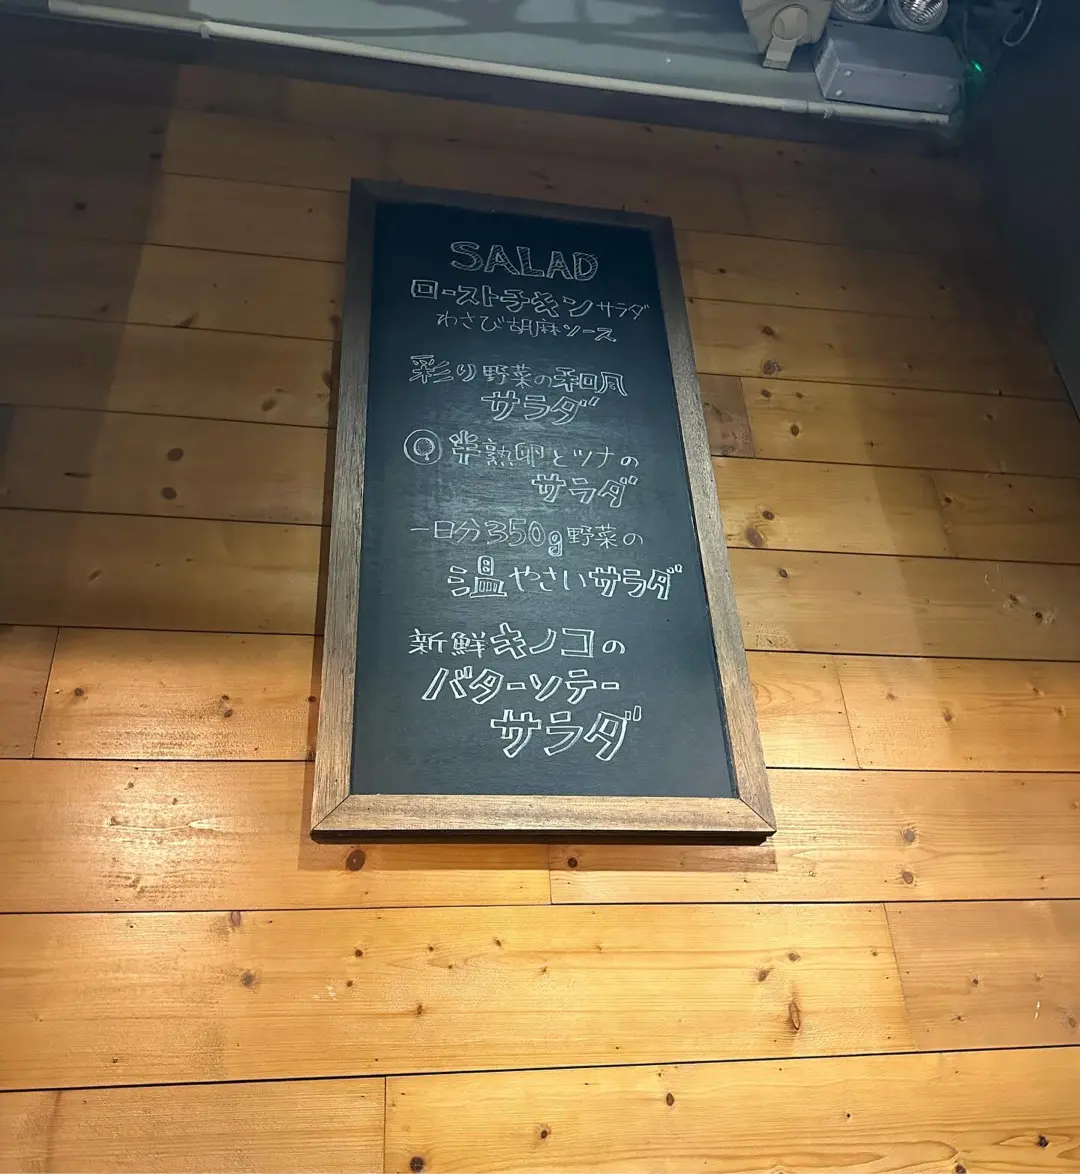 SALAD
ローストチキンサラダ
わさび胡麻ソース
彩り野菜の和風
サラダ
半熟卵とツナの
サラダ
一日分350g野菜の
温やさいサラダ
新鮮キノコの
バターソテー
サラダ